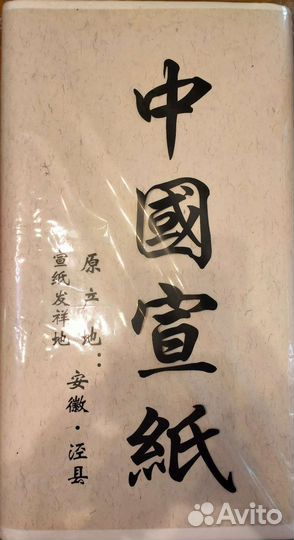 中國宣紙
原产地：安徽·泾县
宣纸发祥地
Avito